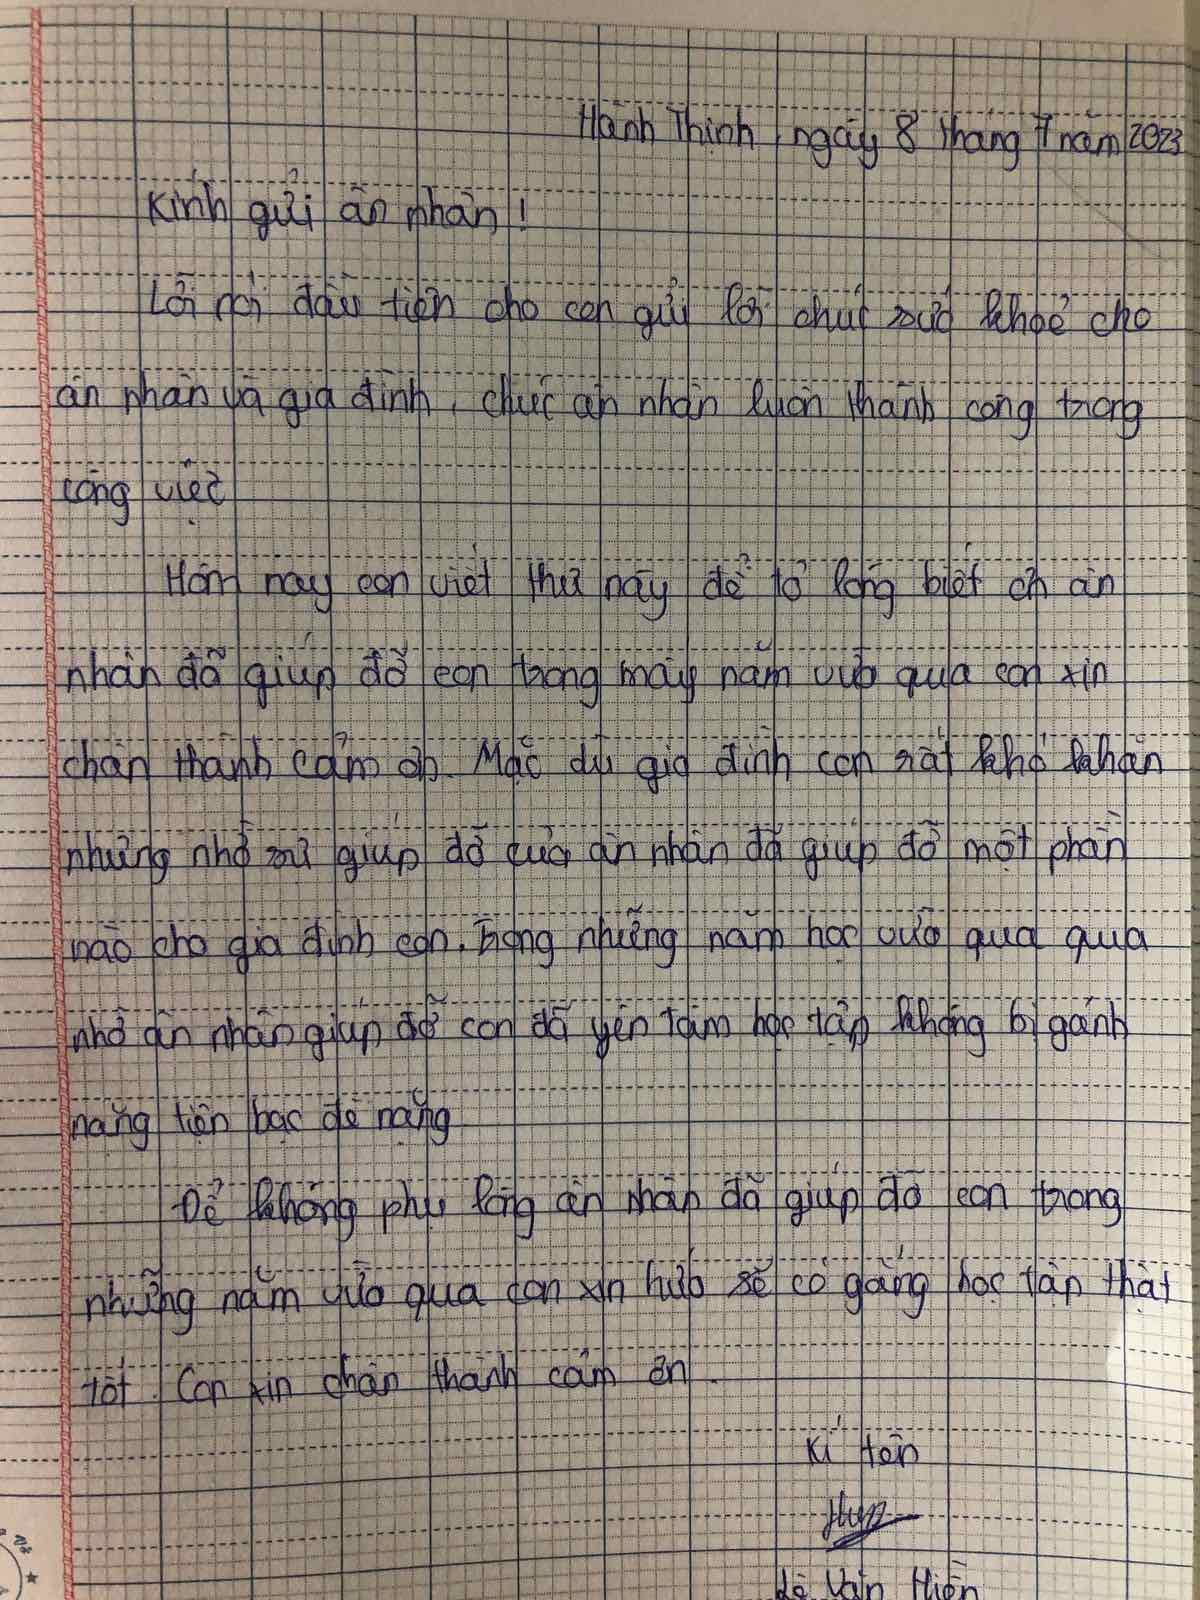 Hành Thịnh, ngày 8 tháng 7 năm 2023
Kính gửi ân nhân!
Lời nói đầu tiên cho con gửi lời chúc sức khoẻ cho
ân nhân và gia đình, chúc ân nhân luôn thành công trong
công việc
Hôm nay con viết thư này để tỏ lòng biết ơn ân
nhân đã giúp đỡ con trong mấy năm vừa qua con xin
chân thành cảm ơn. Mặc dù gia đình con rất khó khăn
nhưng nhờ sự giúp đỡ của ân nhân đã giúp đỡ một phần
nào cho gia đình con. Trong những năm học vừa qua qua
nhờ ân nhân giúp đỡ con đã yên tâm học tập không bị gánh
nặng tiền bạc đè nặng
Để không phụ lòng ân nhân đã giúp đỡ con trong
những năm vừa qua con xin hứa sẽ cố gắng học tập thật
tốt. Con xin chân thành cảm ơn.
Kí tên
Lê Văn Hiền